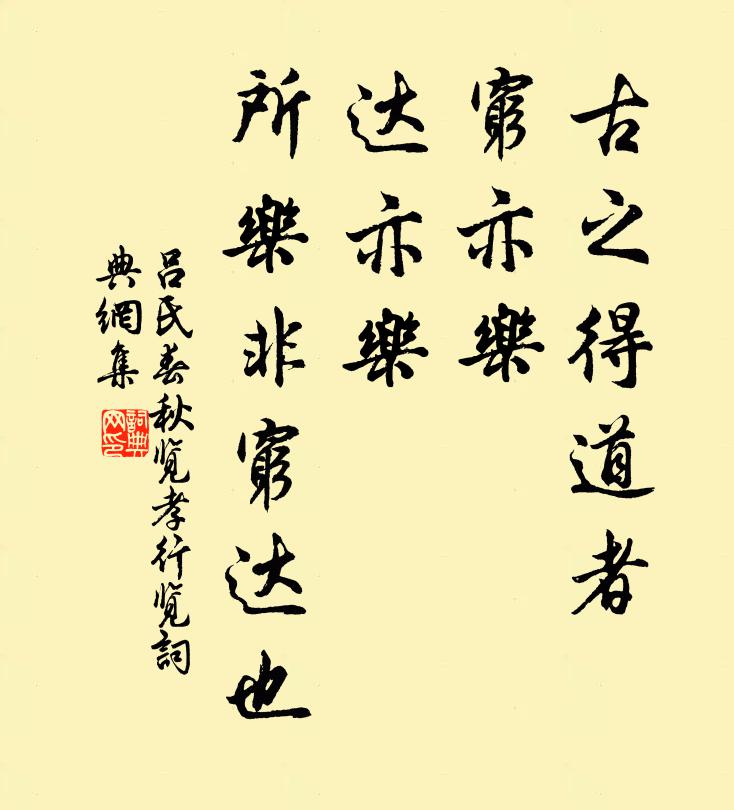 古之得道者
窮亦樂
达亦樂
所樂非窮达也
吕氏春秋览孝行览詞
典網集
詞典
网印